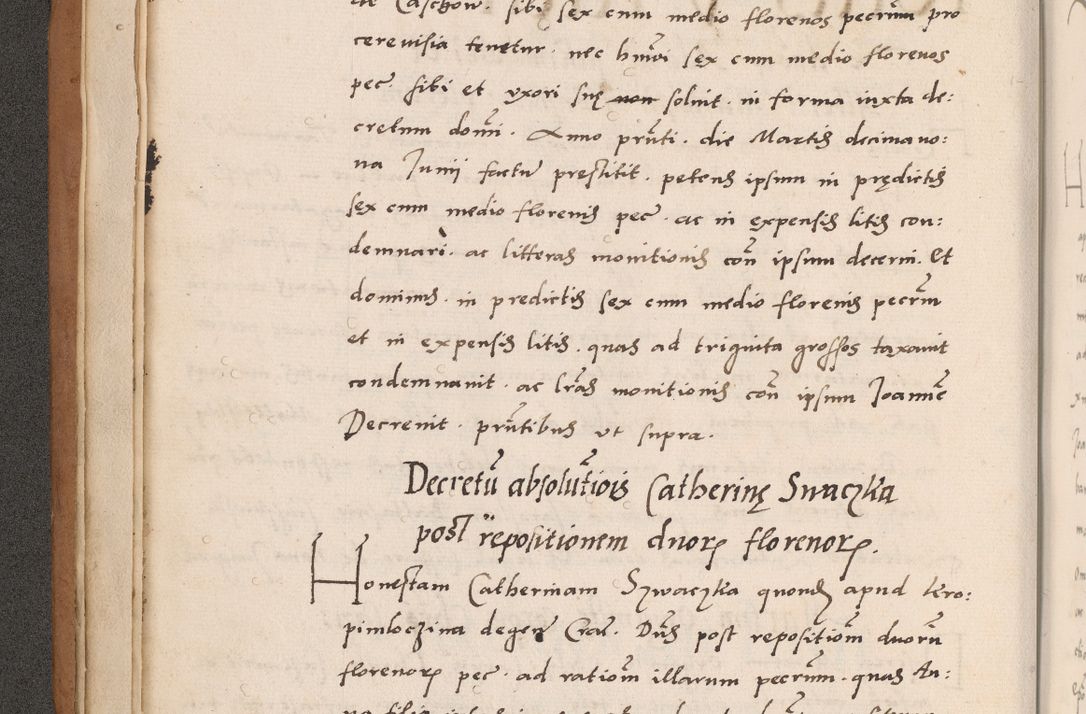 de Caschow. sibi sex cum medio florenos pecrum̃ pro
cerevisia tenetur. nec hm̃oi sęx cum medio florenos
pec̃ sibi et uxori suę non solvit. in forma iuxta de:
cretum domi̇. Anno prñti. die Martis decimano:
na Junii factu prestitit. petens ipsum in prędictis
sęx cum medio florenis pec̃ ac in expensis litis con:
demnari. ac litteras monitionis con̄ ipsum decerni. Et
dominus in predictis sex cum medio florenis pecrm̃
et in expensis litis. quas ad triginta grossos taxavit
condemnavit. ac lr̃as monitionis con̄ ipsum Joannem̃
Decrevit. prñtibus ut supra.
Decretũ absolut̃iois Catherinę Swaczka
post repositionem duorʒ florenorʒ.
Honestam Catherinam Szwaczka quondʒ apud Iero:
pimloczina degenẽ Crac̃. Dn̄s post repositiom̃ duorũ
florenorʒ pec̃. ad ratiom̃ illarum pecrum̃. quas An:
na filia